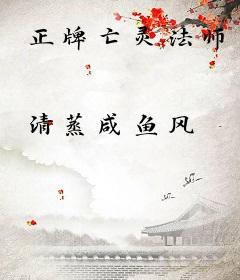 正牌亡灵法师
清蒸咸鱼风